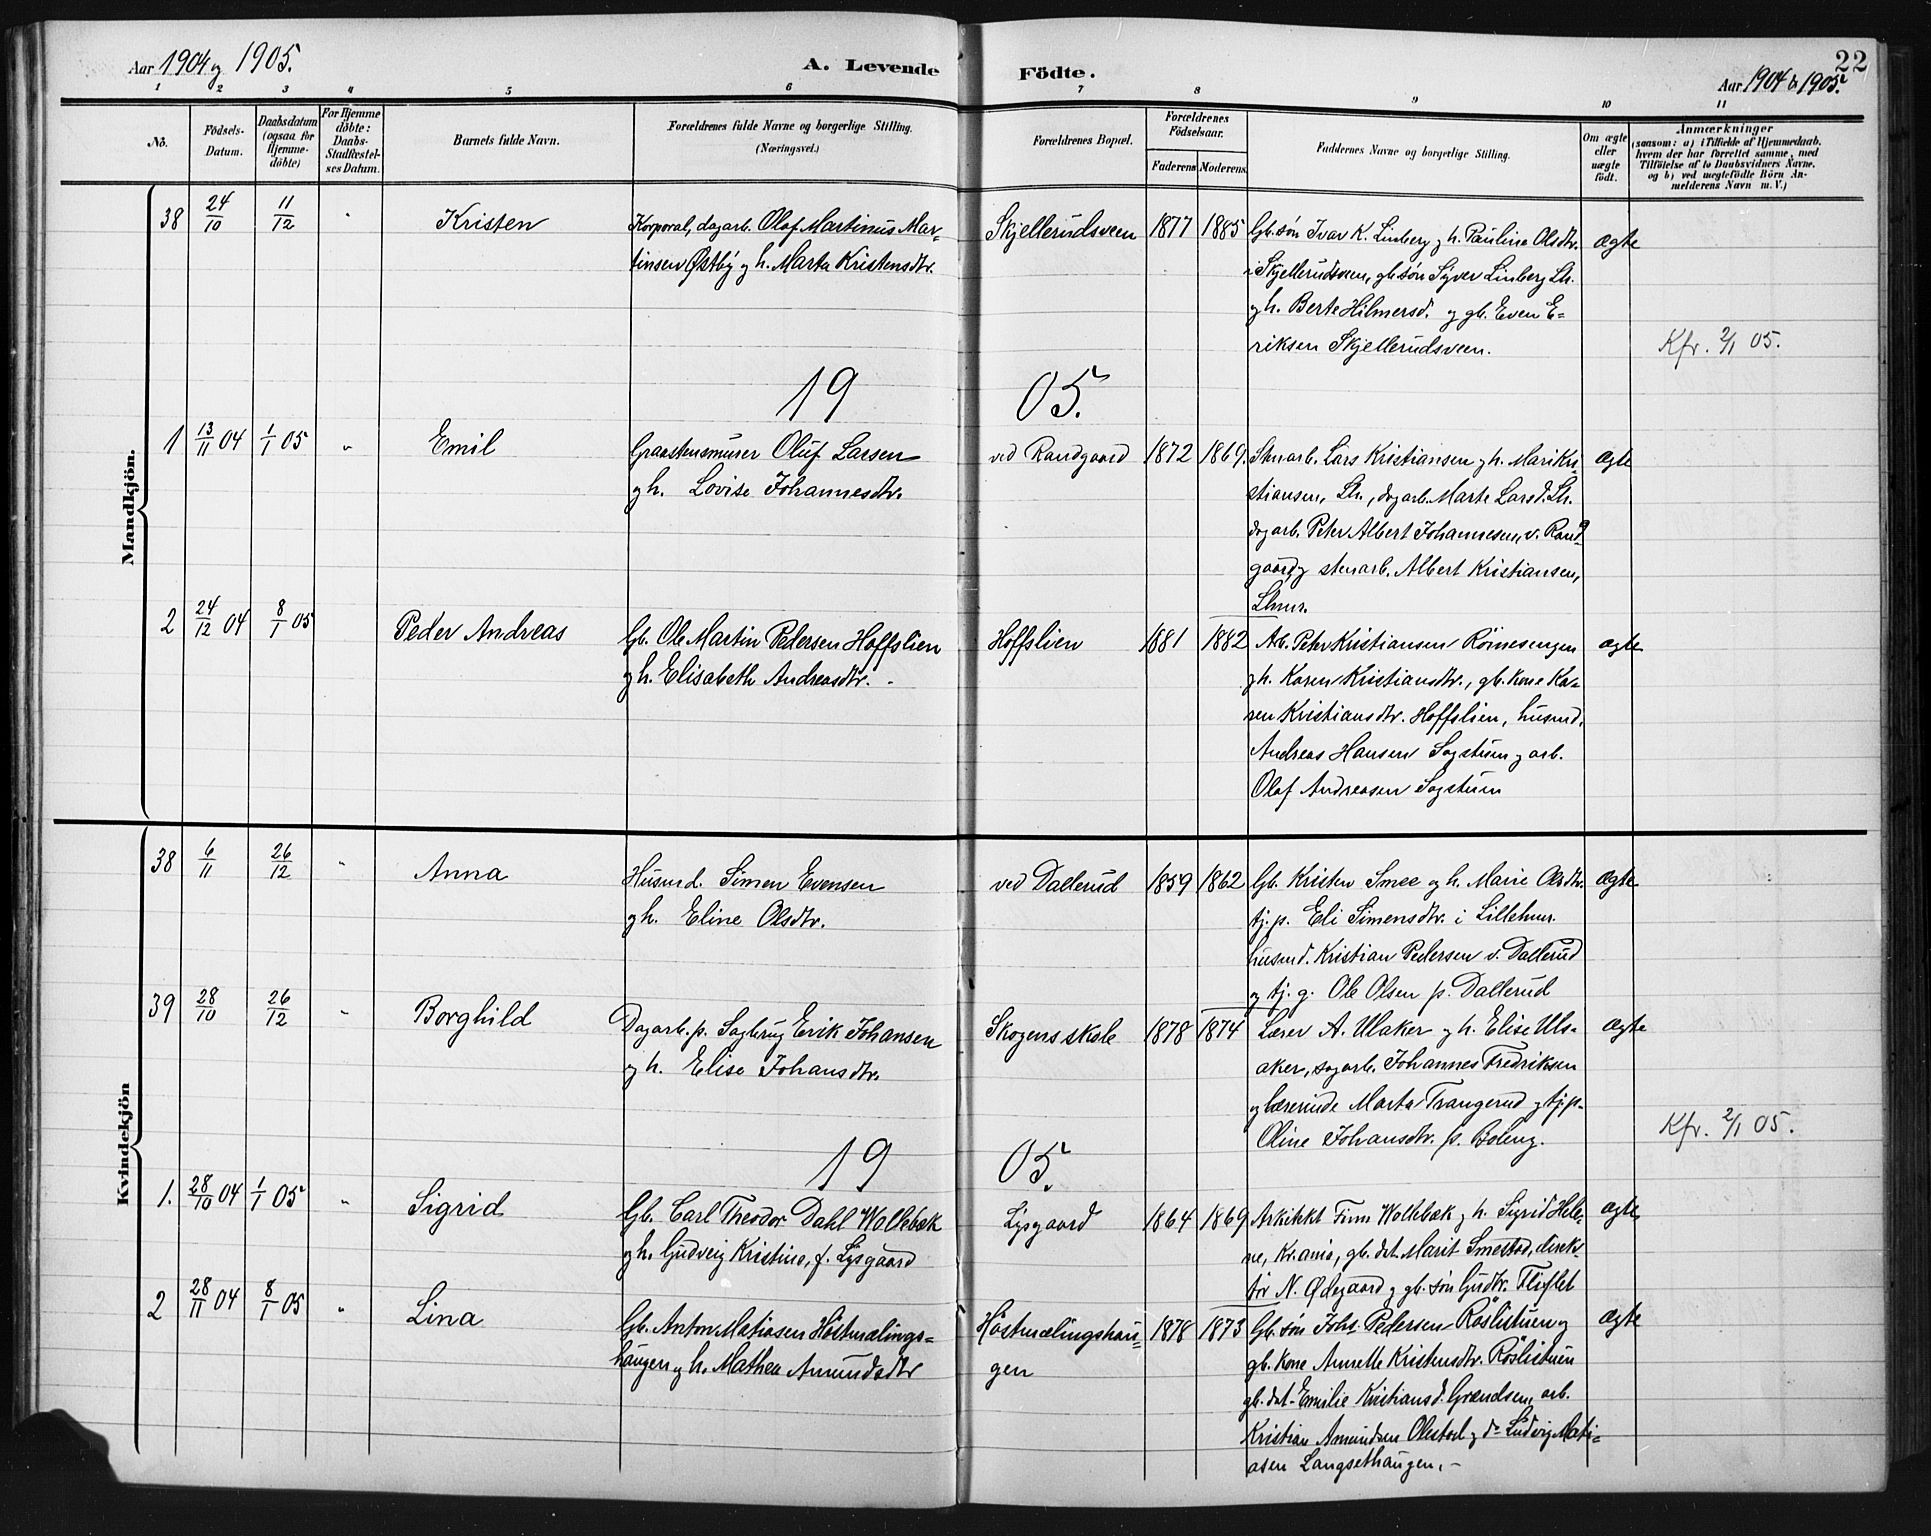 Aar 1904 og 1905.
A. Levende Födte.
22
Aar 1904 & 1905.
1 2 3 4 5 6 7 8 9 10 11
No.
Födsels-
Datum.
Daabsdatum
(ogsaa for
Hjemme-
döbte)
For Hjemme
döbte:
Daabs-
Stadfestel-
ses Datum.
Barnets fulde Navn.
Forældrenes fulde Navne og borgerlige Stilling.
(Næringsvei.)
Forældrenes Bopæl.
Forældrenes
Födselsaar.
Faderens Moderens
Faddernes Navne og borgerlige Stilling.
Om ægte
eller
uægte
födt.
Anmærkninger
(saasom: a) i Tilfælde af Hjemmedaab,
hvem der har forrettet samme, med
Tilföielse af to Daabsvidners Navne.
og b) ved uægtefödte Börn An-
melderens Navn m. V.)
Mandkjön.
38 24/10 11/12 " Kristen
Korporal, dagarb. Olaf Martinus Mar-
tinsen Østby og h. Marta Kristensdtr.
Skjellerudsveen 1877 1885
Gb. søn Ivar K. Linberg og h. Pauline Olsdtr.
i Skjellerudsveen, gb. søn Syver Linberg Lh.
og h. Berte Hilmersd. og gb. Even E-
riksen Skjellerudsveen.
Ægte
Kfr. 2/1 05.
19 05.
1 13/11 04 1/1 05 " Emil
Graastensmurer Oluf Larsen
og h. Lovise Johannesdtr.
ved Randgaard 1872 1869.
Stenarb. Lars Kristiansen og h. Mari Kri
stiansen, Lh., dagarb. Marte Larsd. Lh.
dagarb. Peter Albert Johannesen, v. Rand-
gaard og stenarb. Albert Kristiansen,
Lhmr.
Ægte
2 24/12 04 8/1 05 Peder Andreas
Gb. Ole Martin Pedersen Hoffslien
og h. Elisabeth Andreasdtr.
Hoffslien 1881 1882
Arb. Peter Kristiansen Rönnesengen
og h. Karen Kristiansdtr., gb. kone Ka-
ren Kristiansdtr. Hoffslien, husmd.
Andreas Hansen Sagstuen og arb.
Olaf Andreasen Sagstuen
Ægte
Kvindekjön
38 6/11 26/12 " Anna
Husmd. Simen Evensen
og h. Eline Olsdtr.
ved Dallerud 1859 1862
Gb. Kristen Smee og h. Marie Olsdtr.
tj. p. Eli Simensdtr. i Lillehmr.
husmd. Kristian Pedersen v. Dallerud
og tj. g. Ole Olsen p. Dallerud
Ægte
39 28/10 26/12 " Borghild
Dagarb. p. Sagbrug Erik Johansen
og h. Elise Johansdtr.
Skogens skole 1878 1874
Lærer A. Ulaker og h. Elise Uls-
aker, sagarb. Johannes Fredriksen
og lærerinde Marta Trangerud og tj. p.
Oline Johansdtr. p. Boleng.
Ægte
Kfr. 2/1 05.
19 05.
1. 28/10 04 1/1 05 " Sigrid
Gb. Carl Theodor Dahl Wollebæk
og h. Gudveig Kristine, f. Lysgaard
Lysgaard 1864 1869
Arkitekt Finn Wollebæk og h. Sigrid Hele-
ne, Kr.ania, gb. dat. Marit Smestad, direk-
tör N. Ødegaard og gb. søn Gudbr. Fliflet
Ægte
2 28/11 04 8/1 05 " Lina
Gb. Anton Matiasen Höstmælings-
haugen og h. Mathea Amundsdtr
Höstmælingshau-
gen
1878 1873
Gb. søn Johs. Pedersen Röslistuen og
gb. kone Annette Kristensdtr. Röslistuen
gb. dat. Emilie Kristiansd. Grændsen, arb.
Kristian Amundsen Olestad og do Ludvig Mati-
asen Langsethaugen.
Ægte